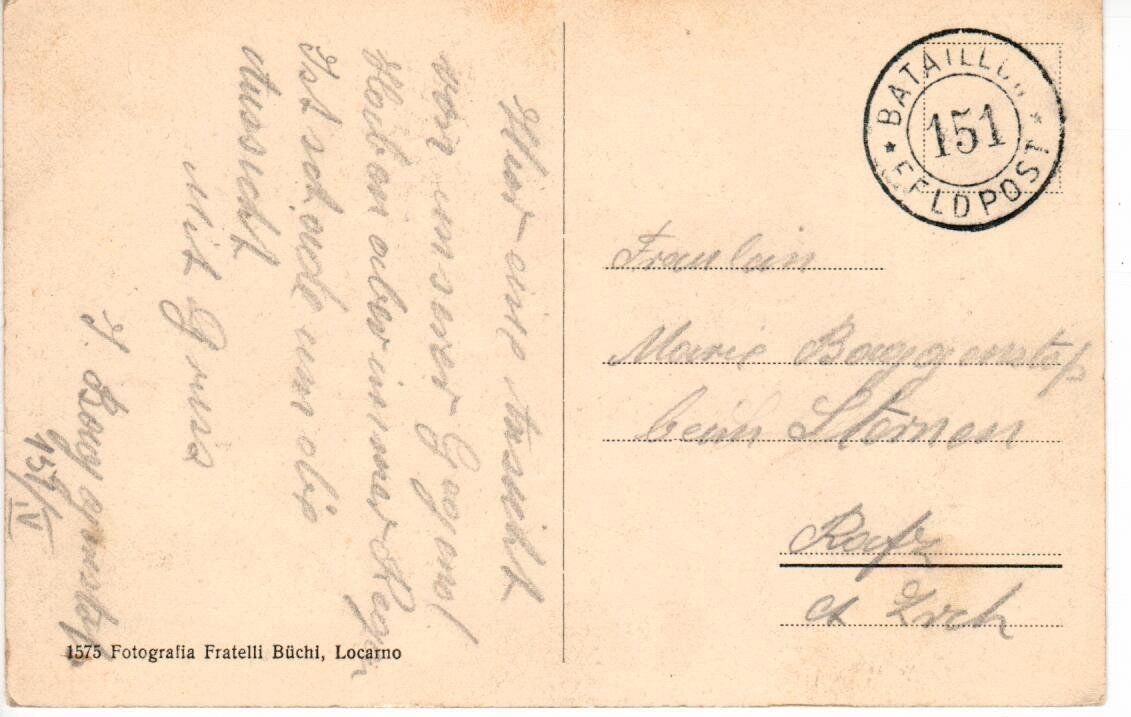 Hier eine Ansicht
von unserer Gegend
Haben aber immer Regen
Ist schade um die
Aussicht
Mit Gruss
J.
151/IV
BATAILLON
151
* FELDPOST *
Fraulein
Marie
beim Sternen
Rafz
Ct Zrch
1575 Fotografia Fratelli Büchi, Locarno